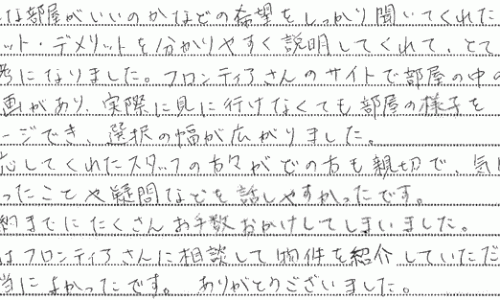 な部屋がいいのかなどの希望をしっかり聞いてくれた
ット・デメリットを分かりやすく説明してくれて、とて
考になりました。フロンティアさんのサイトで部屋の中の
画があり、実際に見に行けなくても部屋の様子を
ージでき、選択の幅が広がりました。
応してくれたスタッフの方々がどの方も親切で、気に
ったことや疑問などを話しやすかったです。
約までにたくさんお手数おかけしてしまいました。
はフロンティアさんに相談して物件を紹介していただ
当によかったです。 ありがとうございました。